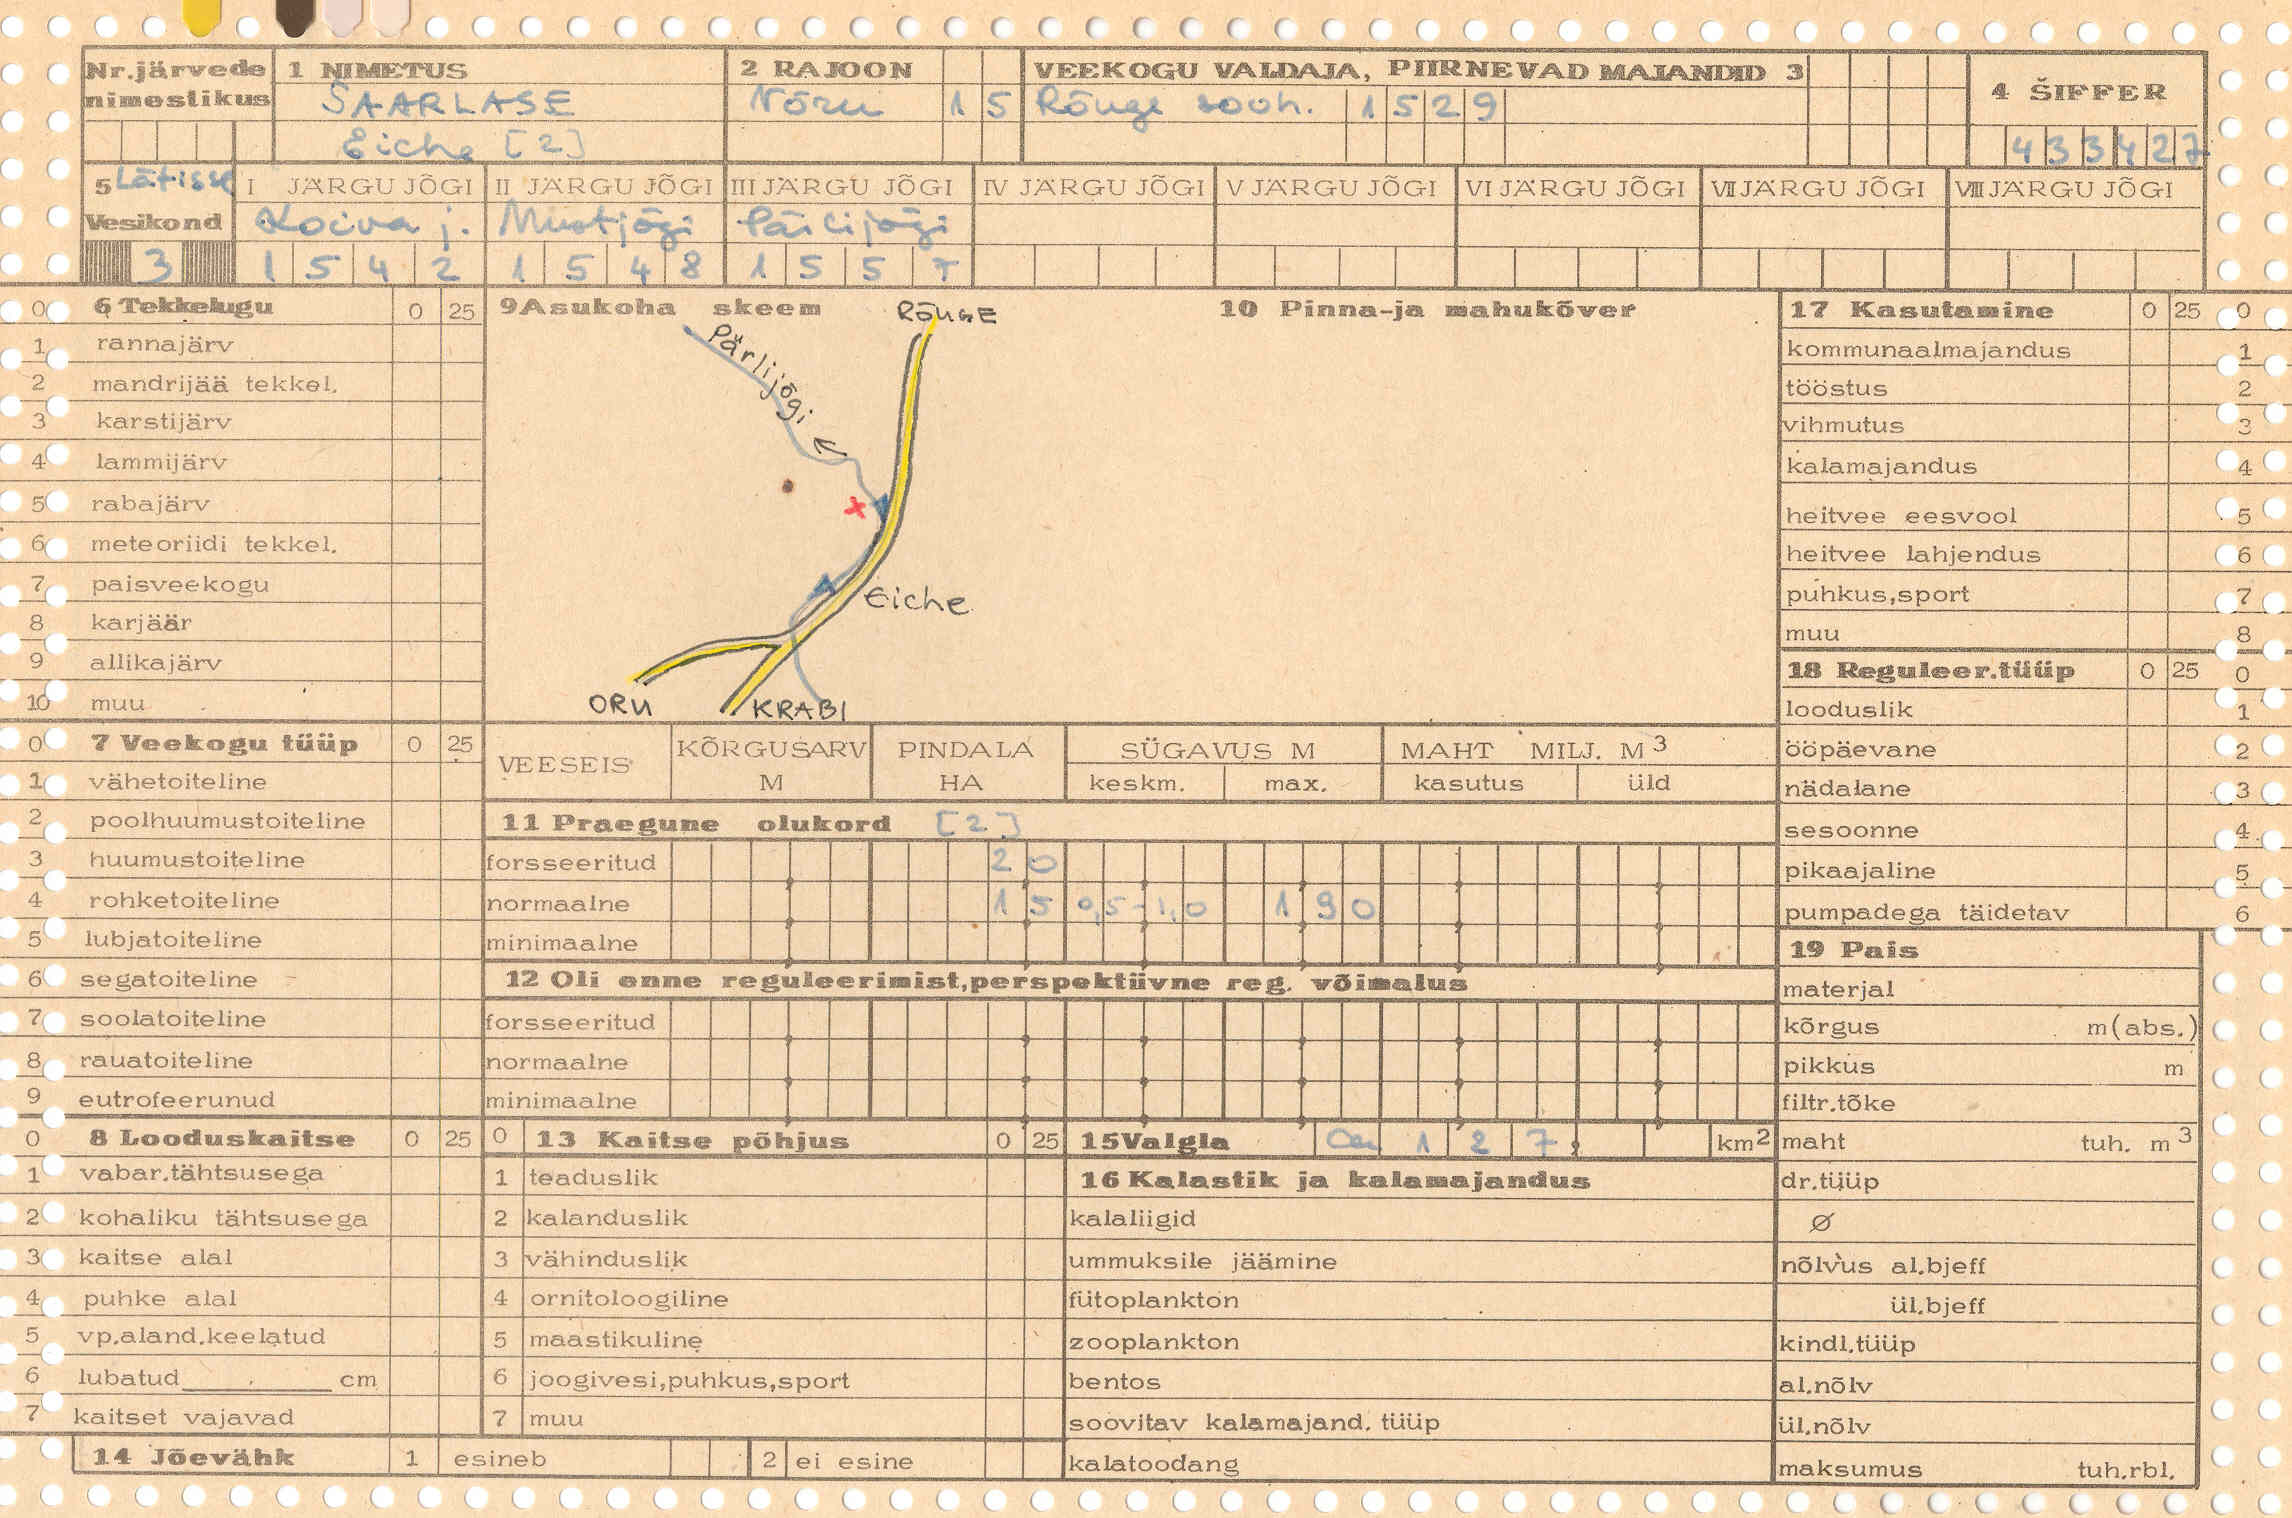 Nr.järvede nimestikus
1 NIMETUS
SAARLASE
Eiche [2]
2 RAJOON
Võru 1 5
VEEKOGU VALDAJA, PIIRNEVAD MAJANDID 3
Rõuge sooh. 1 5 2 9
4 ŠIFFER
4 3 3 4 2 7
5 Lätisse
Vesikond
3
I JÄRGU JÕGI
Koiva j.
1 5 4 2
II JÄRGU JÕGI
Mustjõgi
1 5 4 8
III JÄRGU JÕGI
Pärlijõgi
1 5 5 7
IV JÄRGU JÕGI
V JÄRGU JÕGI
VI JÄRGU JÕGI
VII JÄRGU JÕGI
VIII JÄRGU JÕGI
0 6 Tekkelugu 0 25
1 rannajärv
2 mandrijää tekkel.
3 karstijärv
4 lammijärv
5 rabajärv
6 meteoriidi tekkel.
7 paisveekogu
8 karjäär
9 allikajärv
10 muu
0 7 Veekogu tüüp 0 25
1 vähetoiteline
2 poolhuumustoiteline
3 huumustoiteline
4 rohketoiteline
5 lubjatoiteline
6 segatoiteline
7 soolatoiteline
8 rauatoiteline
9 eutrofeerunud
0 8 Looduskaitse 0 25
1 vabar.tähtsusega
2 kohaliku tähtsusega
3 kaitse alal
4 puhke alal
5 vp.aland.keelatud
6 lubatud______ cm
7 kaitset vajavad
14 Jõevähk 1 esineb 2 ei esine
9 Asukoha skeem
RÕUGE
Pärlijõgi
Eiche
ORU
KRABI
10 Pinna-ja mahukõver
VEESEIS
KÕRGUSARV M
PINDALA HA
SÜGAVUS M
keskm. max.
MAHT MILJ. M3
kasutus üld
11 Praegune olukord [2]
forsseeritud 2 0
normaalne 1 5 0,5-1,0 1 9 0
minimaalne
12 Oli enne reguleerimist,perspektiivne reg. võimalus
forsseeritud
normaalne
minimaalne
0 13 Kaitse põhjus 0 25
1 teaduslik
2 kalanduslik
3 vähinduslik
4 ornitoloogiline
5 maastikuline
6 joogivesi,puhkus,sport
7 muu
15 Valgla Ca 1 2 7, km2
16 Kalastik ja kalamajandus
kalaliigid
ummuksile jäämine
fütoplankton
zooplankton
bentos
soovitav kalamajand. tüüp
kalatoodang
17 Kasutamine 0 25 0
kommunaalmajandus 1
tööstus 2
vihmutus 3
kalamajandus 4
heitvee eesvool 5
heitvee lahjendus 6
puhkus,sport 7
muu 8
18 Reguleer.tüüp 0 25 0
looduslik 1
ööpäevane 2
nädalane 3
sesoonne 4
pikaajaline 5
pumpadega täidetav 6
19 Pais
materjal
kõrgus m(abs.)
pikkus m
filtr.tõke
maht tuh. m3
dr.tüüp
Ø
nõlvus al.bjeff
ül.bjeff
kindl.tüüp
al.nõlv
ül.nõlv
maksumus tuh.rbl.